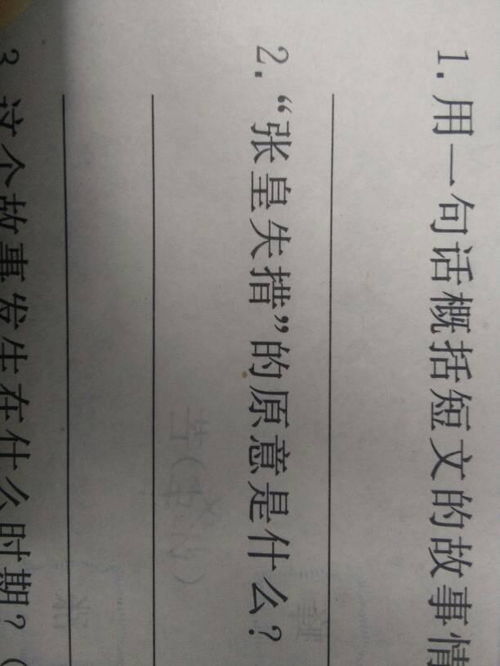 1.用一句话概括短文的故事情
2.“张皇失措”的原意是什么?
3.这个故事发生在什么时期?(